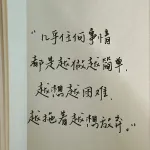 “几乎任何事情
都是越做越简单,
越想越困难,
越拖着越想放弃。”